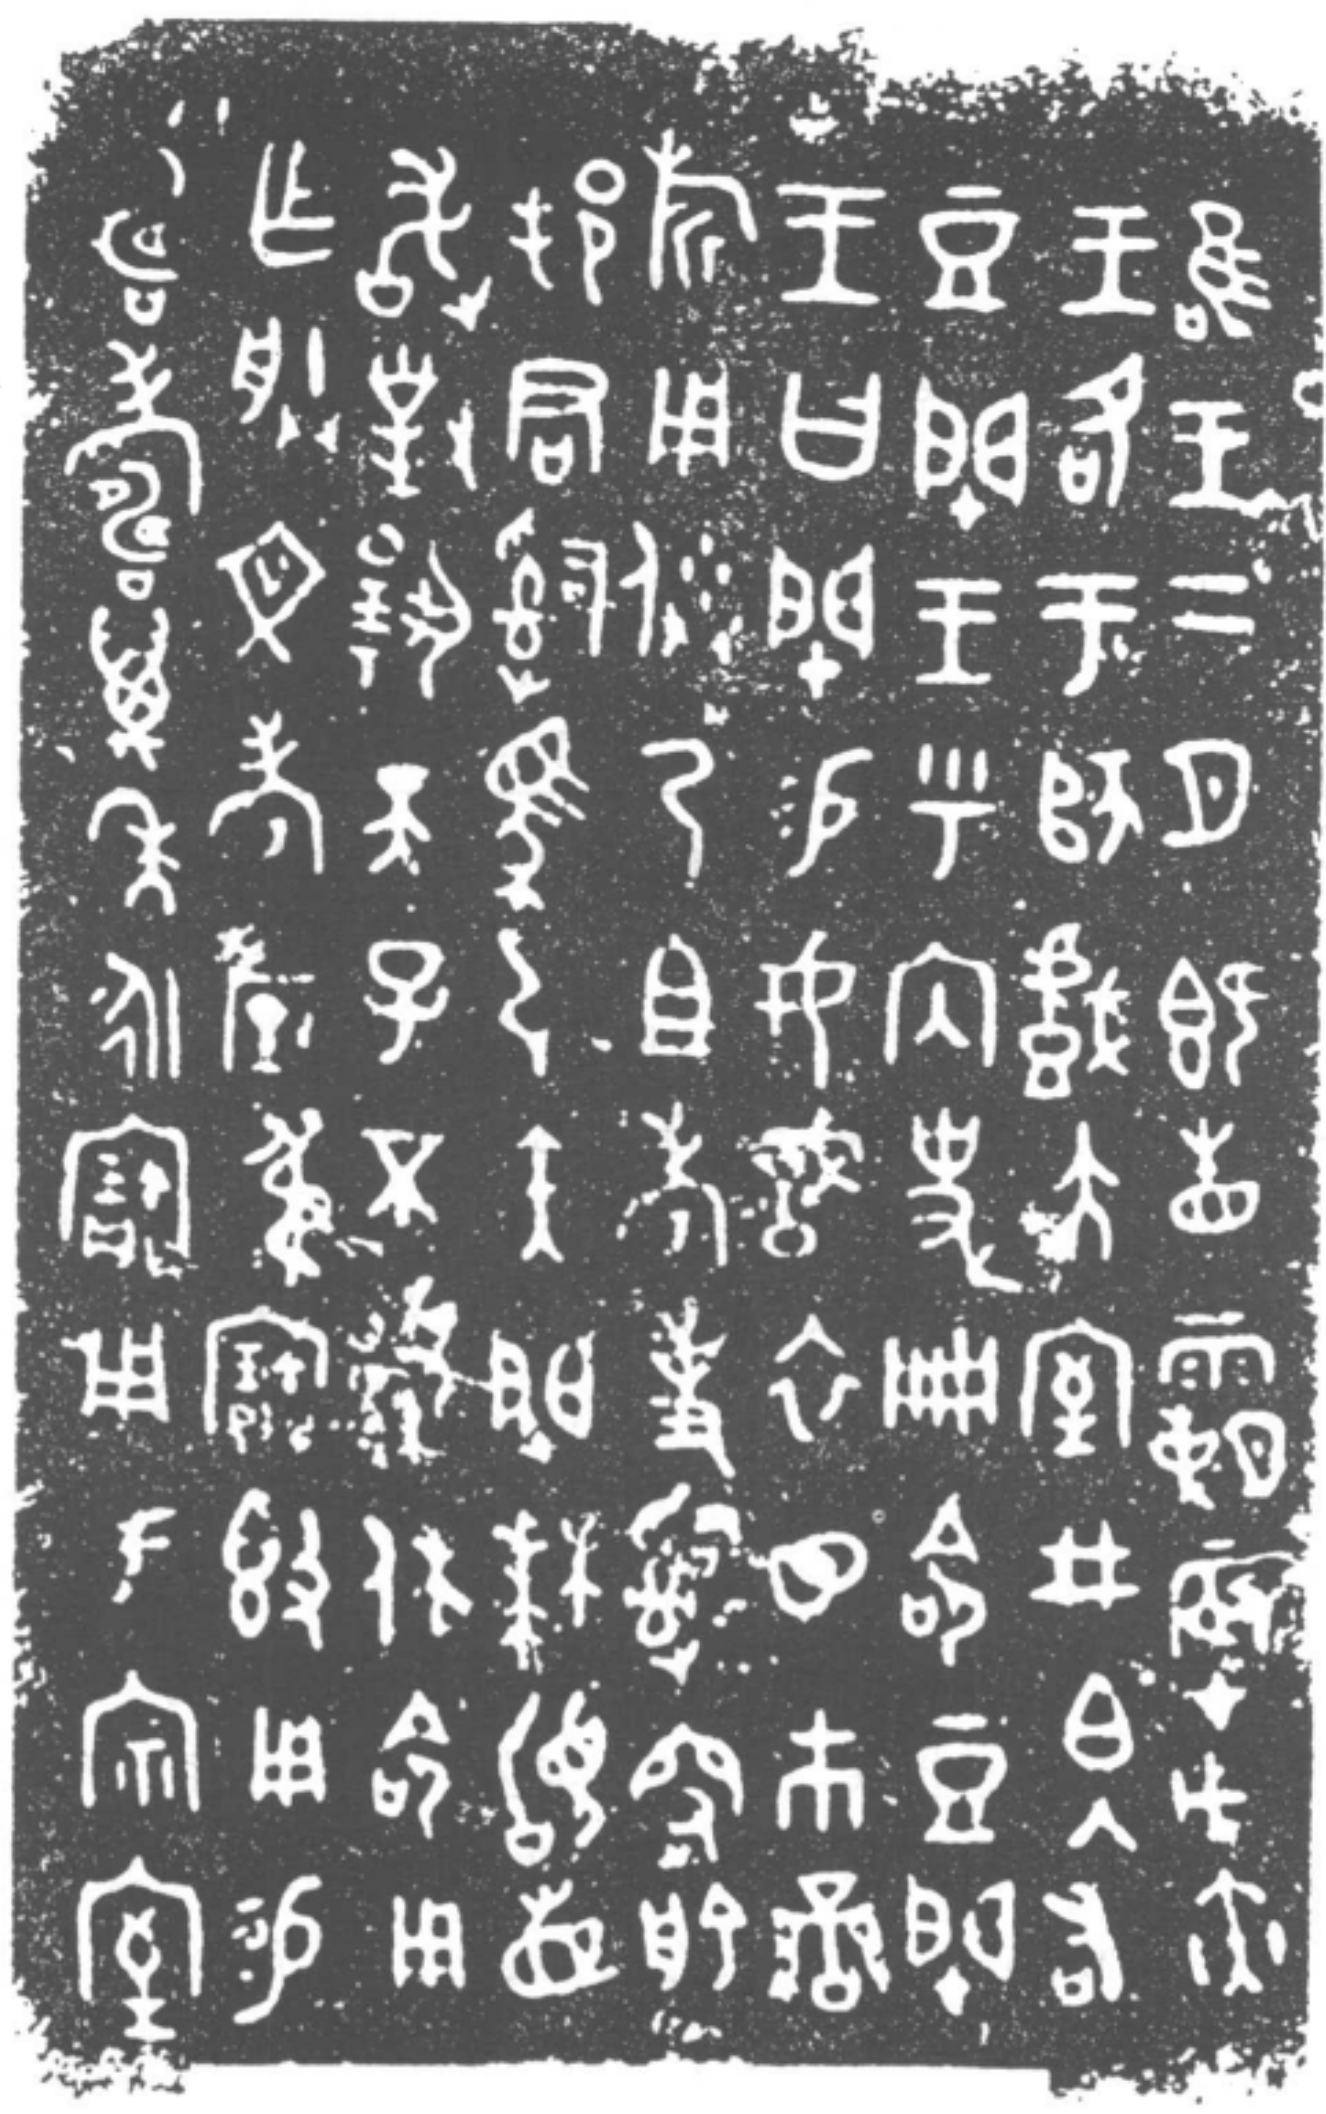 唯王二月既眚霸辰才戊寅
王各于師戲大室井白入右
豆閉王乎內史冊命豆閉
王曰閉易女戠衣巿䜌
旂用乃且考事𤔲俞
邦君𤔲馬弓矢閉拜𩒨首
敢對揚天子不顯休命用
乍朕文考釐叔寶簋用易
壽萬年永寶用于宗室